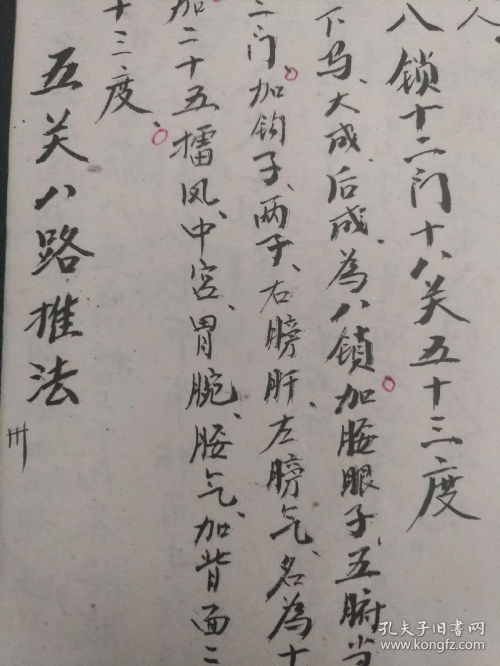 人。
八锁十二门十八关五十三度
下马、大成、后成、為八鎖。加腰眼子、五腑当
二门。加钩子、两子、右膀肝、左膀气、名為十
加二十五擂风、中宫、胃腕、腰气、加背面二
十三度。
五关八路推法
卅
孔夫子旧书网
www.kongfz.com